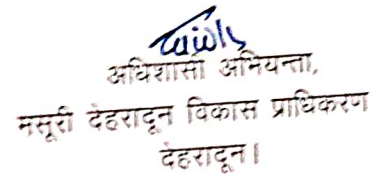 अधिशासी अभियन्ता,
मसूरी देहरादून विकास प्राधिकरण
देहरादून।